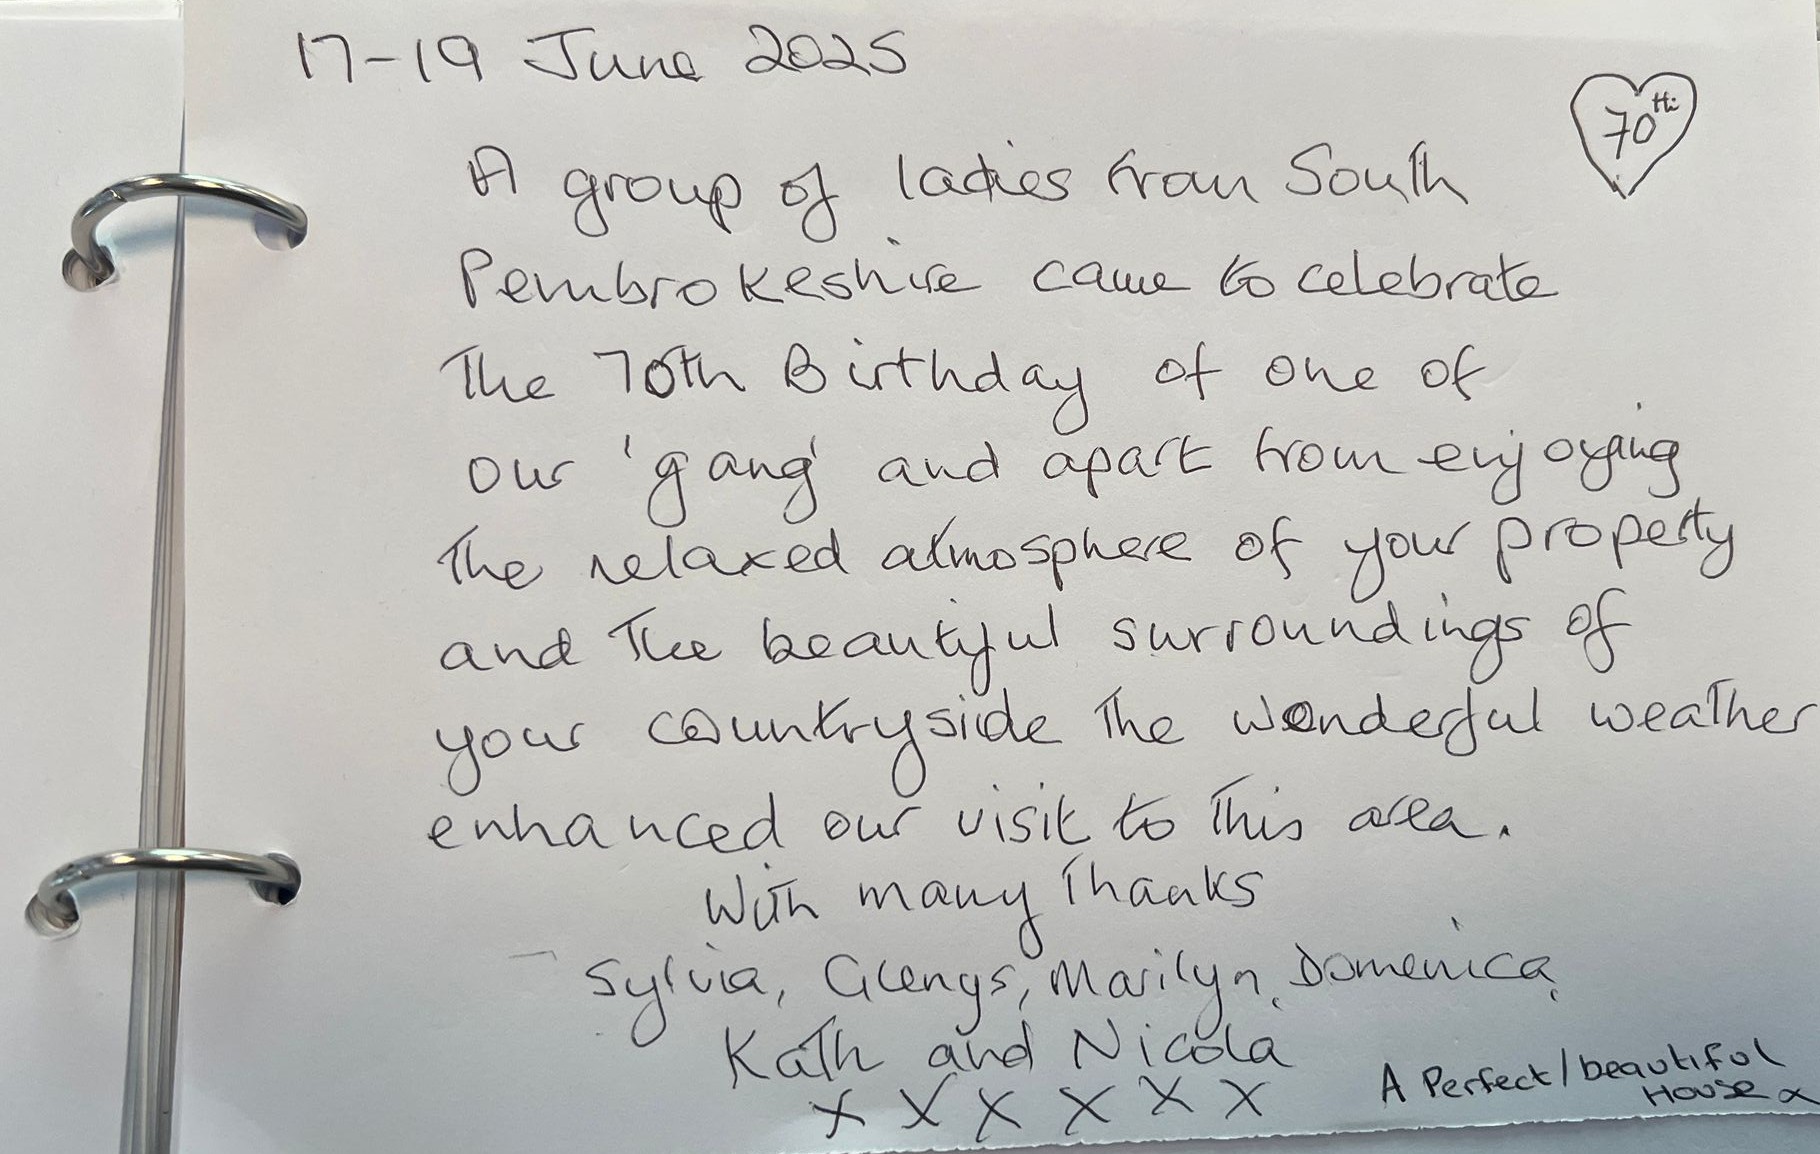 17-19 June 2025
70th
A group of ladies from South
Pembrokeshire came to celebrate
the 70th Birthday of one of
our 'gang' and apart from enjoying
the relaxed atmosphere of your property
and the beautiful surroundings of
your countryside the wonderful weather
enhanced our visit to this area.
With many thanks
Sylvia, Glenys, Marilyn, Domenica,
Kath and Nicola
X X X X X X
A Perfect/beautiful
House x